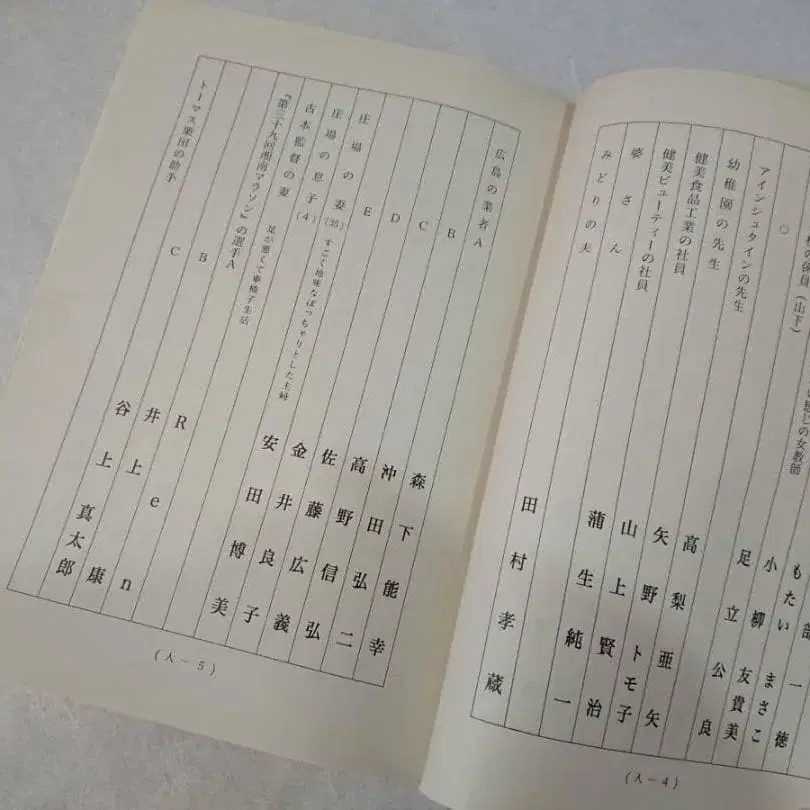 の係員(山下)
い感じの女教師
○
アインシュタインの先生
幼稚園の先生
健美食品工業の社員
健美ビューティーの社員
婆さん
みどりの夫
部一徳
もたいまさこ
小柳友貴美
足立公良
高梨亜矢
矢野トモ子
山上賢治
蒲生純一
田村孝蔵
(人-4)
広島の業者A
B
C
D
E
庄場の妻(35) すごく地味なぽっちゃりとした主婦
庄場の息子(4)
古本監督の妻 足が悪くて車椅子生活
『第三十九回湘南マラソン』の選手A
B
C
トーマス栗田の助手
森下能幸
沖田弘二
高野信弘
佐藤広義
金井良子
安田博美
Ren
井上康
谷上真太郎
(人-5)